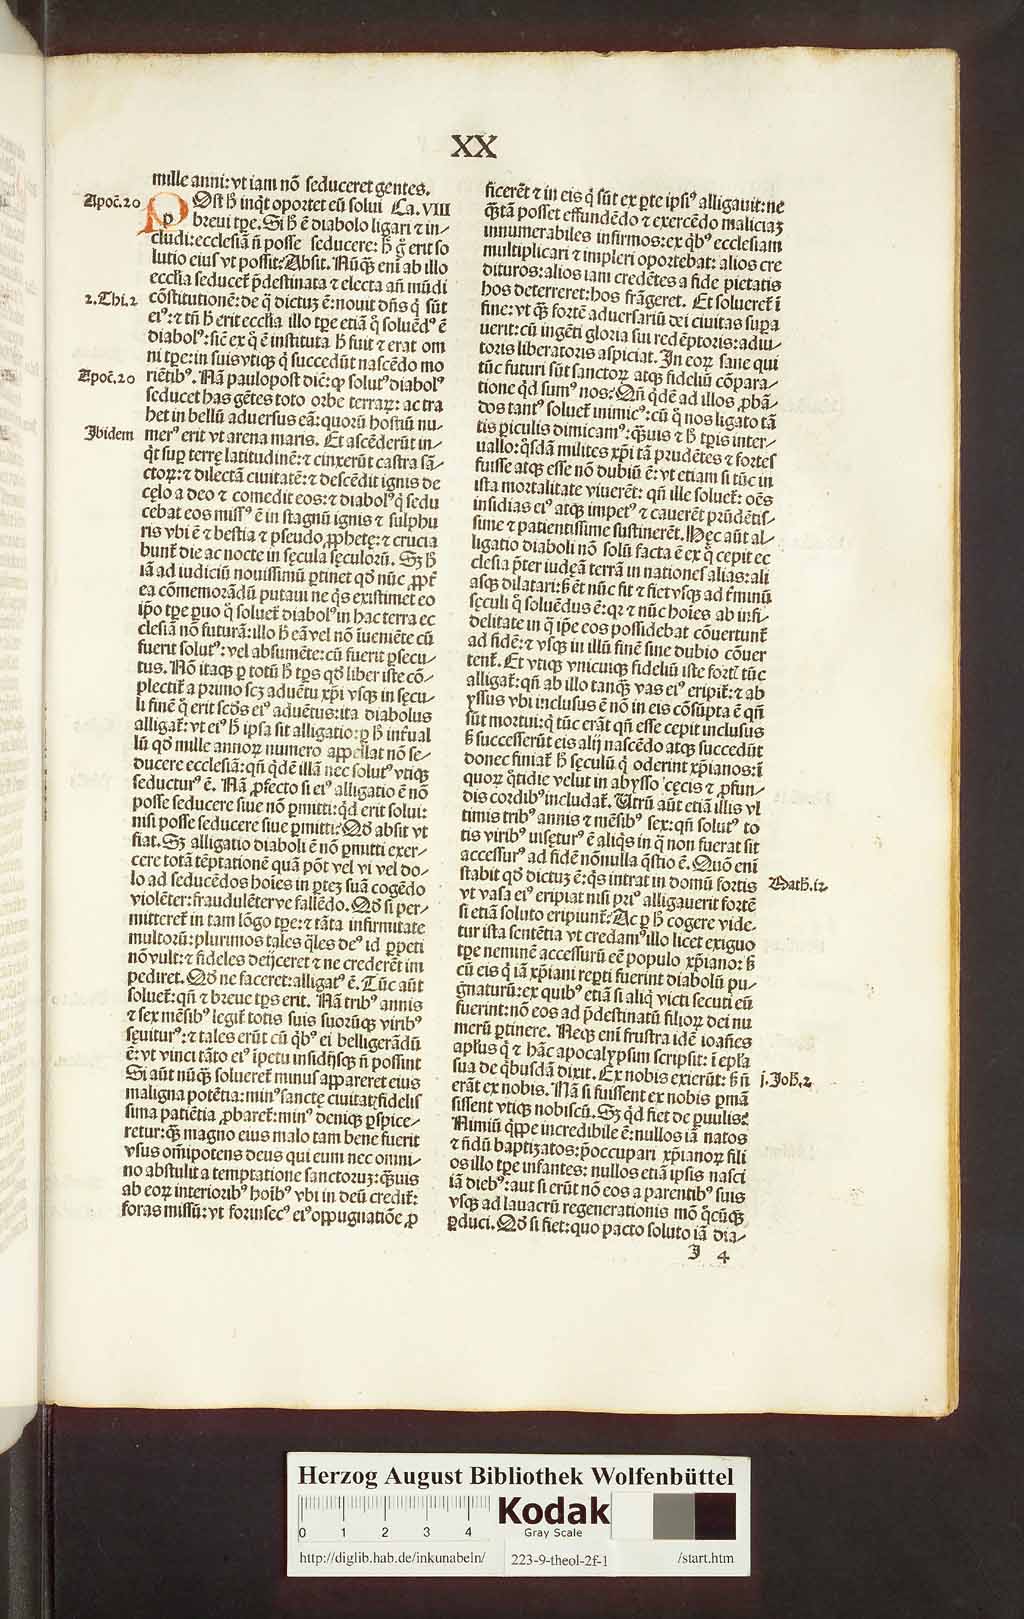 XX
mille anni: vt iam nō seduceret gentes.
Apoc̄. 20
POst h̄ inqͥt oportet eū solui Ca. VIII
breui tp̄e. Si h̄ ē diabolo ligari ⁊ in⸗
cludi: ecclesiā n̄ posse seducere: h̄ g̊ erit so
lutio eius vt possit? Absit. Nūqᷓ enī ab illo
eccl̄ia seducet᷑ p̄destinata ⁊ electa añ mūdi
2. Thi. 2
cōstitutionē: de q̄ dictuꝫ ē: nouit dn̄s q̇ sūt
eiꝰ: ⁊ tn̄ h̄ erit eccl̄ia illo tp̄e etiā q̊ soluēdꝰ ē
diabolꝰ: sic̄ ex q̊ ē instituta h̄ fuit ⁊ erat om
ni tp̄e: in suis vtiqꝫ q̇ succedūt nascēdo mo
Apoc̄. 20
riētibꝰ. Nā paulopost dic̄: ꝙ solutꝰ diabolꝰ
seducet has gētes toto orbe terraꝝ: ac tra
het in bellū aduersus eā: quorū hostiū nu⸗
Ibidem
merꝰ erit vt arena maris. Et ascēderūt in⸗
qͥt suꝑ terrę latitudinē: ⁊ cinxerūt castra sā⸗
ctoꝝ: ⁊ dilectā ciuitatē: ⁊ descēdit ignis de
cęlo a deo ⁊ comedit eos: ⁊ diabolꝰ q̇ sedu
cebat eos missꝰ ē in stagnū ignis ⁊ sulphu
ris vbi ē ⁊ bestia ⁊ pseudo ꝓphetę: ⁊ crucia
bunt᷑ die ac nocte in sęcula sęculorū. Sꝫ h̄
iā ad iudiciū nouissimū ꝑtinet qd̄ nūc ꝓpt᷑
ea cōmemorādū putaui ne qͥs existimet eo
ip̄o tp̄e ꝑuo q̊ soluet᷑ diabolꝰ in hac terra ec
clesiā nō futurā: illo h̄ eā vel nō īueniēte cū
fuerit solutꝰ: vel absumēte: cū fuerit ꝑsecu⸗
tus. Nō itaqꝫ ꝑ totū h̄ tp̄s qd̄ liber iste cō⸗
plectit᷑ a primo scꝫ aduētu xp̄i vsqꝫ in sęcu⸗
li finē q̊ erit scd̄s eiꝰ aduētus: ita diabolus
alligat᷑: vt eiꝰ h̄ ipsa sit alligatio: ꝑ h̄ int᷑ual
lū qd̄ mille annoꝝ numero appellat nō se⸗
ducere ecclesiā: qn̄ qͥdē illā nec solutꝰ vtiqꝫ
seducturꝰ ē. Nā ꝓfecto si eiꝰ alligatio ē nō
posse seducere siue nō ꝑmitti: qͥd erit solui:
nisi posse seducere siue ꝑmitti? Qd̄ absit vt
fiat. Sꝫ alligatio diaboli ē nō ꝑmitti exer⸗
cere totā tēptationē quā pōt vel vi vel do⸗
lo ad seducēdos hoīes in ꝑteꝫ suā cogēdo
violēter: fraudulēterve fallēdo. Qd̄ si per⸗
mitteret᷑ in tam lōgo tp̄e: ⁊ tāta infirmitate
multorū: plurimos tales qͣles deꝰ id ꝑpeti
nō vult: ⁊ fideles deijceret ⁊ ne crederēt im
pediret. Qd̄ ne faceret: alligatꝰ ē. Tūc aūt
soluet᷑: qn̄ ⁊ breue tp̄s erit. Nā tribꝰ annis
⁊ sex mēsibꝰ legit᷑ totis suis suorūqꝫ viribꝰ
sęuiturꝰ: ⁊ tales erūt cū qͥbꝰ ei belligerādū
ē: vt vinci tāto eiꝰ īpetu insidijsqꝫ n̄ possint
Si aūt nūqᷓ solueret᷑ minus appareret eius
maligna potētia: minꝰ sanctę ciuitat᷑ fidelis
sima patiētia ꝓbaret᷑: minꝰ deniqꝫ ꝑspice⸗
retur: qᷓ magno eius malo tam bene fuerit
vsus om̄ipotens deus qui eum nec omni⸗
no abstulit a temptatione sanctoruꝫ: qᷓuis
ab eoꝝ interioribꝰ hoībꝰ vbi in deū credit᷑:
foras missū: vt forinsecꝰ eiꝰ oppugnatiōe ꝓ
ficerēt ⁊ in eis q̇ sūt ex ꝑte ipsiꝰ alligauit: ne
qᷓtā posset effundēdo ⁊ exercēdo maliciaꝫ
innumerabiles infirmos: ex qͥbꝰ ecclesiam
multiplicari ⁊ impleri oportebat: alios cre
dituros: alios iam credētes a fide pietatis
hos deterreret: hos frāgeret. Et solueret᷑ ī
fine: vt qᷓ fortē aduersariū dei ciuitas supa
uerit: cū ingēti gloria sui redēptoris: adiu⸗
toris liberatoris aspiciat. In eoꝝ sane qui
tūc futuri sūt sanctoꝝ atqꝫ fideliū cōpara⸗
tione qͥd sumꝰ nos? Qn̄ qͥdē ad illos ꝓbā⸗
dos tantꝰ soluet᷑ inimicꝰ: cū q̊ nos ligato tā
tis ꝑiculis dimicamꝰ: qᷓuis ⁊ h̄ tp̄is inter⸗
uallo: qͦsdā milites xp̄i tā prudētes ⁊ fortes
fuisse atqꝫ esse nō dubiū ē: vt etiam si tūc in
ista mortalitate viuerēt: qn̄ ille soluet᷑: oēs
insidias eiꝰ atqꝫ impetꝰ ⁊ cauerēt prūdētis⸗
sime ⁊ patientissime sustinerēt. Hęc aūt al⸗
ligatio diaboli nō solū facta ē ex q̊ cepit ec
clesia p̄ter iudęā terrā in nationes alias: ali
asqꝫ dilatari: s̄ et nūc fit ⁊ fiet vsqꝫ ad t᷑minū
sęculi q̊ soluēdus ē: qꝛ ⁊ nūc hoīes ab infi⸗
delitate in q̄ ip̄e eos possidebat cōuertunt᷑
ad fidē: ⁊ vsqꝫ in illū finē sine dubio cōuer
tent᷑. Et vtiqꝫ vnicuiqꝫ fideliū iste fort᷑ tūc
alligat᷑: qn̄ ab illo tanqᷓ vas eiꝰ eripit᷑: ⁊ ab
yssus vbi inclusus ē nō in eis cōsūpta ē qn̄
sūt mortui: q̇ tūc erāt qn̄ esse cepit inclusus
s̄ successerūt eis alij nascēdo atqꝫ succedūt
donec finiat᷑ h̄ sęculū q̇ oderint xp̄ianos: ī
quoꝝ qͦtidie velut in abysso cęcis ⁊ ꝓfun⸗
dis cordibꝰ includat᷑. Utrū aūt etiā illis vl
timis tribꝰ annis ⁊ mēsibꝰ sex: qn̄ solutꝰ to
tis viribꝰ uisęturꝰ ē aliqͥs in q̊ non fuerat sit
accessurꝰ ad fidē nōnulla qͣstio ē. Quō enī
stabit qd̄ dictuꝫ ē: qͥs intrat in domū fortis
Math. 12
vt vasa eiꝰ eripiat nisi priꝰ alligauerit fortē
si etiā soluto eripiunt᷑? Ac ꝑ h̄ cogere vide⸗
tur ista sentētia vt credamꝰ illo licet exiguo
tp̄e neminē accessurū eē populo xp̄iano: s̄
cū eis q̇ iā xp̄iani reꝑti fuerint diabolū pu⸗
gnaturū: ex quibꝰ etiā si aliq̇ victi secuti eū
fuerint: nō eos ad p̄destinatū filioꝝ dei nu
merū ꝑtinere. Neqꝫ enī frustra idē ioān̄es
apl̄us q̇ ⁊ hāc apocalypsim scripsit: ī epl̄a
sua de qͥbusdā dixit. Ex nobis exierūt: s̄ n̄
j. Joh. 2
erāt ex nobis. Nā si fuissent ex nobis ꝑmā
sissent vtiqꝫ nobiscū. Sꝫ qͥd fiet de ꝑuulis?
Nimiū qͥppe incredibile ē: nullos iā natos
⁊ n̄dū baptizatos: p̄occupari xp̄ianoꝝ fili
os illo tp̄e infantes: nullos etiā ipsis nasci
iā diebꝰ: aut si erūt nō eos a parentibꝰ suis
vsqꝫ ad lauacrū regenerationis mō qͦcūqꝫ
ꝑduci. Qd̄ si fiet: quo pacto soluto iā dia⸗
J 4
Herzog August Bibliothek Wolfenbüttel
Kodak
Gray Scale
0 1 2 3 4
http://diglib.hab.de/inkunabeln/ 223-9-theol-2f-1 /start.htm